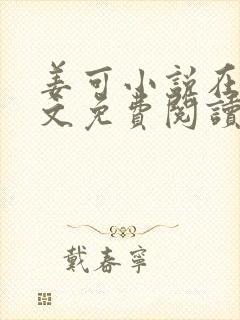 姜可小說在
文免費閱讀
戴春寧